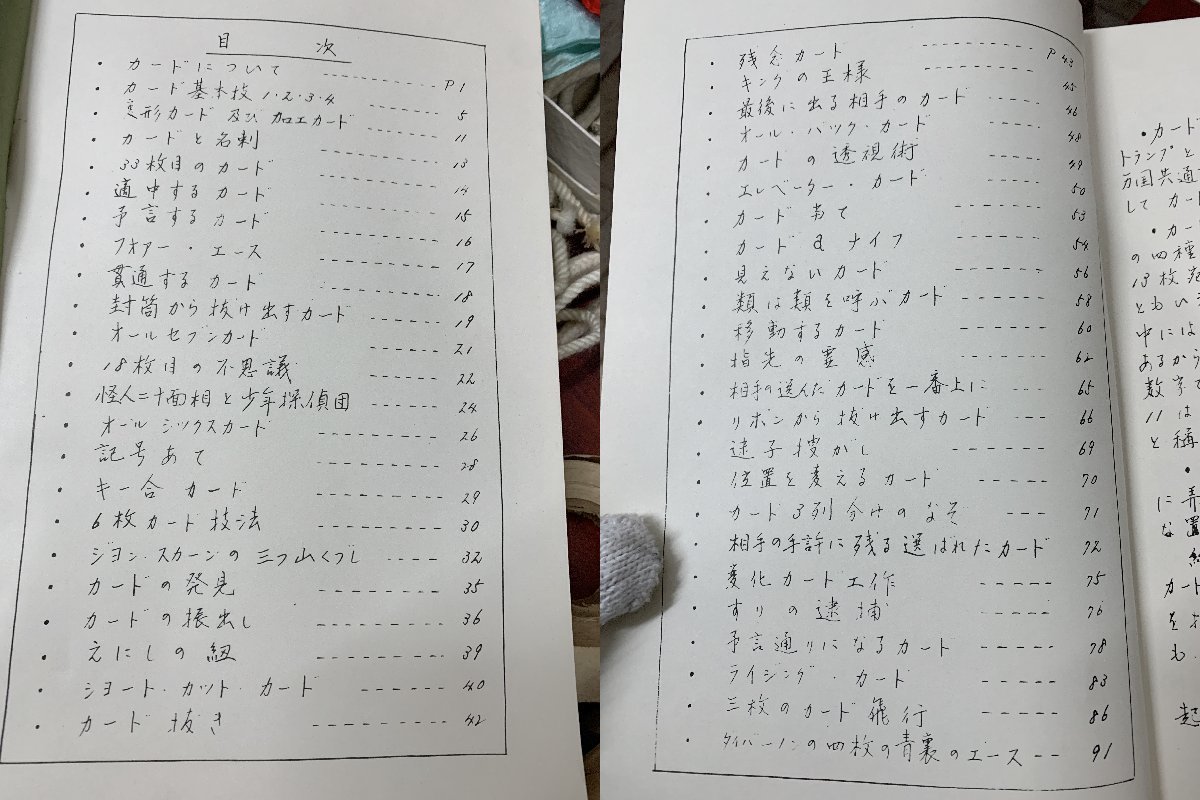 目 次
・カードについて ------ P1
・カード基本技1・2・3・4 ------ 5
・変形カード及び加工カード ------ 11
・カードと名刺 ------ 13
・33枚目のカード ------ 14
・適中するカード ------ 15
・予言するカード ------ 16
・フォアー・エース ------ 17
・貫通するカード ------ 18
・封筒から抜け出すカード ------ 19
・オールセブンカード ------ 21
・18枚目の不思議 ------ 22
・怪人二十面相と少年探偵団 ------ 24
・オールシックスカード ------ 26
・記号あて ------ 28
・キー合カード ------ 29
・6枚カード技法 ------ 30
・ジョン・スカーンの三つ山くづし ---- 32
・カードの発見 ------ 35
・カードの振出し ------ 36
・えにしの紐 ------ 39
・ショート・カット・カード ------ 40
・カード抜き ------ 42
・残念カード ------ P43
・キングの王様 ------ 45
・最後に出る相手のカード ------ 46
・オール・バック・カード ------ 48
・カードの透視術 ------ 49
・エレベーター・カード ------ 50
・カード当て ------ 53
・カードaナイフ ------ 54
・見えないカード ------ 56
・類は類を呼ぶカード ------ 58
・移動するカード ------ 60
・指先の霊感 ------ 62
・相手の選んだカードを一番上に --- 65
・リボンから抜け出すカード ---- 66
・迷子捜がし ------ 69
・位置を変えるカード ------ 70
・カード3列分けのなぞ ---- 71
・相手の手許に残る選ばれたカード --- 72
・変化カード工作 ------ 75
・すりの逮捕 ------ 76
・予言通りになるカード ------ 78
・ライジング・カード ------ 83
・三枚のカード飛行 ------ 86
・タイバーノンの四枚の青裏のエース -- 91
・カード
トランプと
万国共通
して カー
・カー
の四種
13枚
ともい
中には
あるから
数字
11は
と称
に弄
な置
カード
を
も.
起